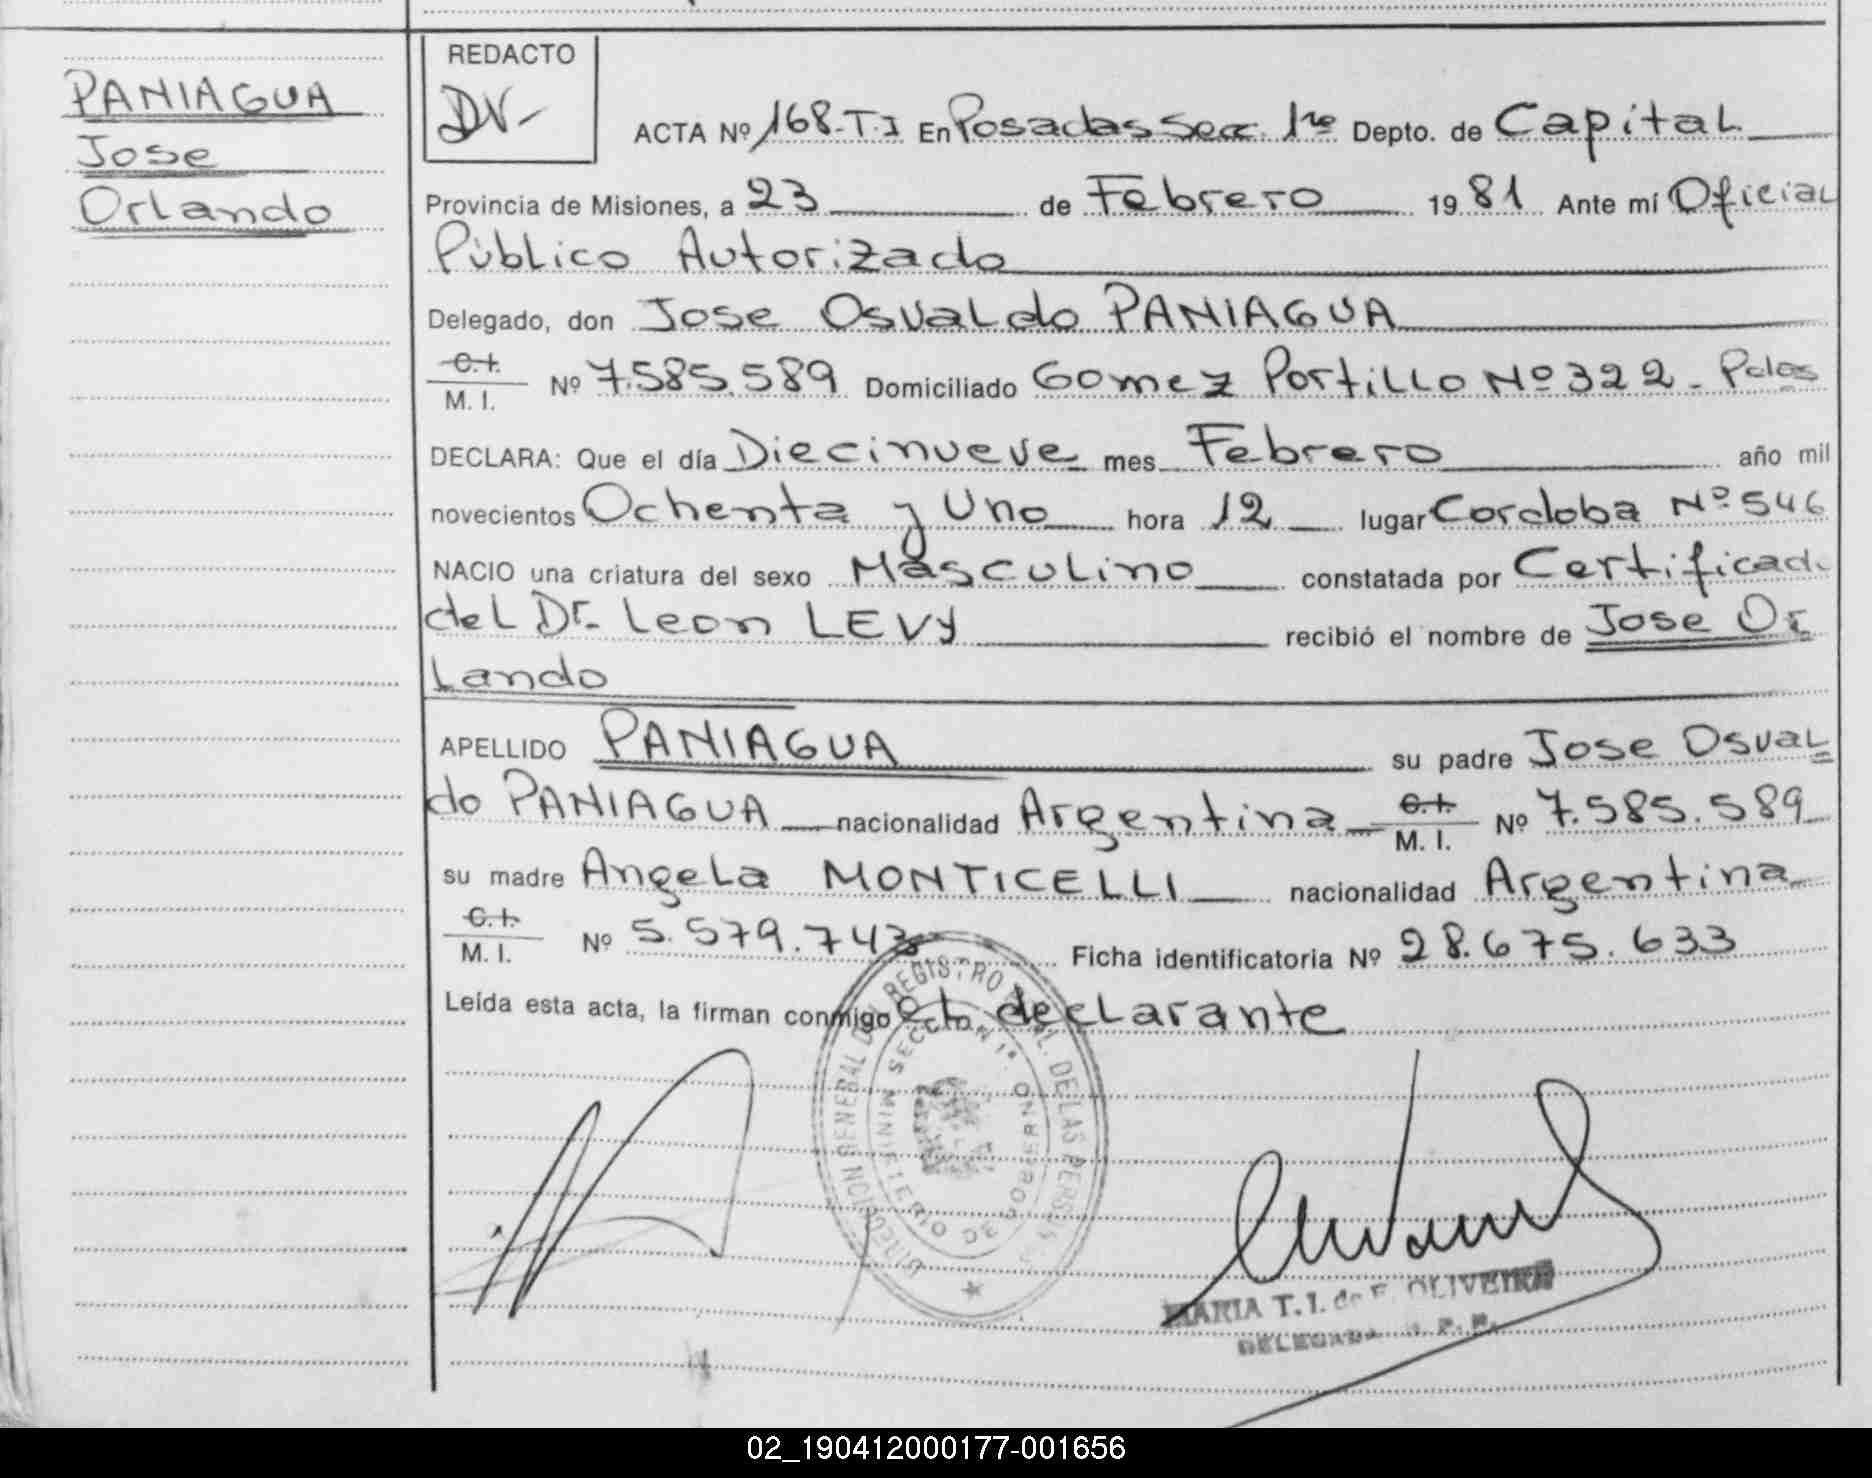 PANIAGUA
Jose
Orlando
REDACTO
DV-
ACTA Nº 168-T.I En Posadas Secc. 1ra Depto. de Capital
Provincia de Misiones, a 23 de Febrero 1981 Ante mí Oficial
Público Autorizado
Delegado, don Jose Osvaldo PANIAGUA
C.I.
M. I. Nº 7.585.589 Domiciliado Gomez Portillo Nº 322 - Pdas
DECLARA: Que el día Diecinueve mes Febrero año mil
novecientos Ochenta y Uno hora 12 lugar Cordoba Nº 546
NACIO una criatura del sexo Masculino constatada por Certificado
del Dr. Leon LEVY recibió el nombre de Jose Or
lando
APELLIDO PANIAGUA su padre Jose Osval
do PANIAGUA nacionalidad Argentina C.I.
M. I. Nº 7.585.589
su madre Angela MONTICELLI nacionalidad Argentina
C.I.
M. I. Nº 5.579.743 Ficha identificatoria Nº 28.675.633
Leída esta acta, la firman conmigo el declarante
DIRECCION GENERAL DEL REGISTRO DE LAS PERSONAS
MINISTERIO DE GOBIERNO
SECCION 1ª
MARIA T. I. de F. OLIVEIRA
DELEGADA R. P. P.
02_190412000177-001656